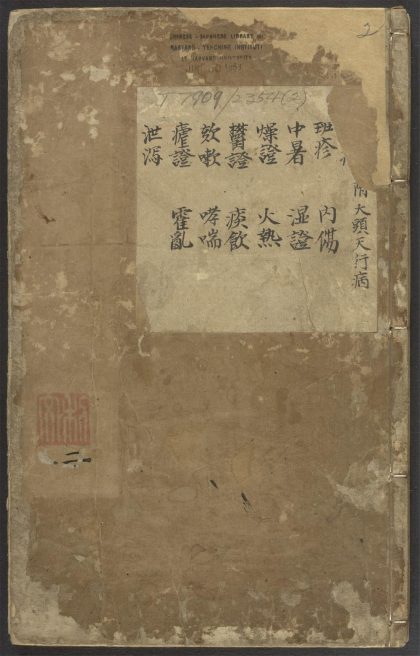 2
CHINESE - JAPANESE LIBRARY OF
HARVARD - YENCHING INSTITUTE
AT HARVARD UNIVERSITY
T 7909/2354(2)
附大頭天行病
班疹 內傷
中暑 湿證
燥證 火熱
鬱證 痰飲
欬嗽 哮喘
瘧證 霍亂
泄瀉
二